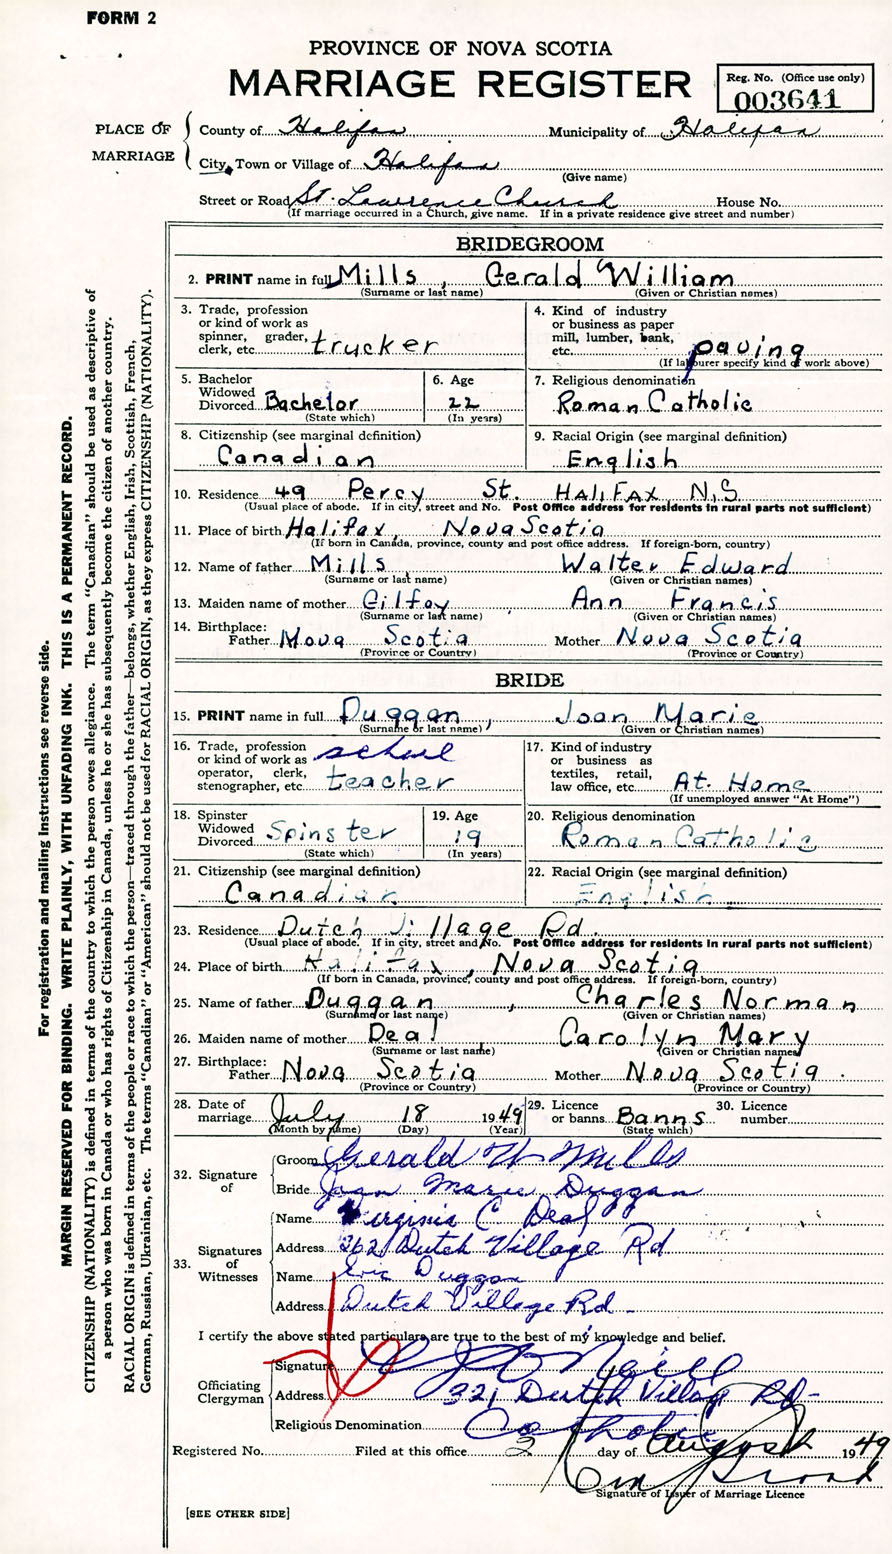 FORM 2
PROVINCE OF NOVA SCOTIA
MARRIAGE REGISTER
Reg. No. (Office use only)
003641
PLACE OF MARRIAGE
County of Halifax Municipality of Halifax
City, Town or Village of Halifax
(Give name)
Street or Road St. Lawrence Church House No.
(If marriage occurred in a Church, give name. If in a private residence give street and number)
BRIDEGROOM
2. PRINT name in full Mills, Gerald William
(Surname or last name) (Given or Christian names)
3. Trade, profession
or kind of work as
spinner, grader,
clerk, etc. trucker
4. Kind of industry
or business as paper
mill, lumber, bank,
etc. paving
(If labourer specify kind of work above)
5. Bachelor
Widowed
Divorced Bachelor
(State which)
6. Age
22
(In years)
7. Religious denomination
Roman Catholic
8. Citizenship (see marginal definition)
Canadian
9. Racial Origin (see marginal definition)
English
10. Residence 49 Percy St. HALIFAX N.S
(Usual place of abode. If in city, street and No. Post Office address for residents in rural parts not sufficient)
11. Place of birth Halifax, Nova Scotia
(If born in Canada, province, county and post office address. If foreign-born, country)
12. Name of father Mills, Walter Edward
(Surname or last name) (Given or Christian names)
13. Maiden name of mother Gilfoy, Ann Francis
(Surname or last name) (Given or Christian names)
14. Birthplace:
Father Nova Scotia Mother Nova Scotia
(Province or Country) (Province or Country)
BRIDE
15. PRINT name in full Duggan, Joan Marie
(Surname or last name) (Given or Christian names)
16. Trade, profession
or kind of work as
operator, clerk,
stenographer, etc. school
teacher
17. Kind of industry
or business as
textiles, retail,
law office, etc. At. Home
(If unemployed answer "At Home")
18. Spinster
Widowed
Divorced Spinster
(State which)
19. Age
19
(In years)
20. Religious denomination
Roman Catholic
21. Citizenship (see marginal definition)
Canadian
22. Racial Origin (see marginal definition)
English
23. Residence Dutch Village Rd.
(Usual place of abode. If in city, street and No. Post Office address for residents in rural parts not sufficient)
24. Place of birth Halifax, Nova Scotia
(If born in Canada, province, county and post office address. If foreign-born, country)
25. Name of father Duggan, Charles Norman
(Surname or last name) (Given or Christian names)
26. Maiden name of mother Deal Carolyn Mary
(Surname or last name) (Given or Christian names)
27. Birthplace:
Father Nova Scotia Mother Nova Scotia.
(Province or Country) (Province or Country)
28. Date of
marriage July 18 1949
(Month by name) (Day) (Year)
29. Licence
or banns Banns
(State which)
30. Licence
number
32. Signature
of
Groom Gerald W Mills
Bride Joan Marie Duggan
33. Signatures
of
Witnesses
Name Virginia C Deal
Address 262 Dutch Village Rd
Name Eric Duggan
Address Dutch Village Rd-
I certify the above stated particulars are true to the best of my knowledge and belief.
Officiating
Clergyman
Signature O'Neill
Address 321 Dutch Village Rd-
Religious Denomination Catholic
Registered No. Filed at this office 2 day of August 1949
Signature of Issuer of Marriage Licence
[SEE OTHER SIDE]
For registration and mailing instructions see reverse side.
MARGIN RESERVED FOR BINDING. WRITE PLAINLY, WITH UNFADING INK. THIS IS A PERMANENT RECORD.
CITIZENSHIP (NATIONALITY) is defined in terms of the country to which the person owes allegiance. The term "Canadian" should be used as descriptive of
a person who was born in Canada or who has rights of Citizenship in Canada, unless he or she has subsequently become the citizen of another country.
RACIAL ORIGIN is defined in terms of the people or race to which the person—traced through the father—belongs, whether English, Irish, Scottish, French,
German, Russian, Ukrainian, etc. The terms "Canadian" or "American" should not be used for RACIAL ORIGIN, as they express CITIZENSHIP (NATIONALITY).